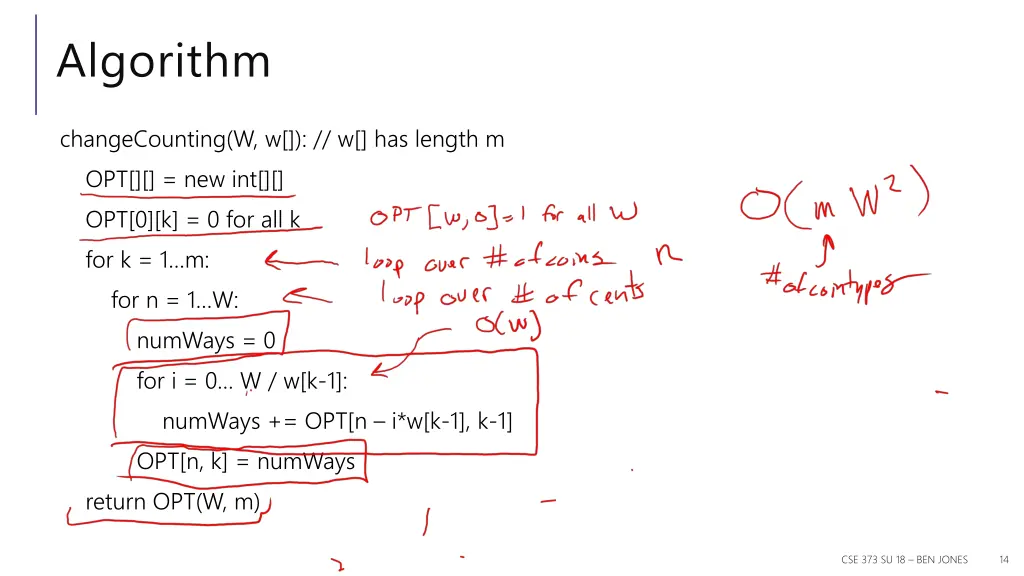 Algorithm
changeCounting(W, w[]): // w[] has length m
OPT[][] = new int[][]
OPT[0][k] = 0 for all k
OPT [w, 0] = 1 for all W
for k = 1…m:
loop over # of coins
n
for n = 1…W:
loop over # of cents
numWays = 0
O(W)
for i = 0… W / w[k-1]:
numWays += OPT[n – i*w[k-1], k-1]
OPT[n, k] = numWays
return OPT(W, m)
O(m W²)
# of cointypes
CSE 373 SU 18 – BEN JONES
14